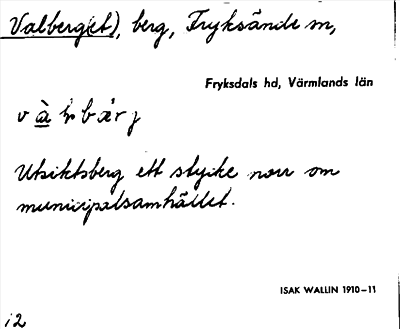 Valberg(et), berg, Fryksände sn,
Fryksdals hd, Värmlands län
Utsiktsberg ett stycke norr om
municipalsamhället.
ISAK WALLIN 1910–11
12